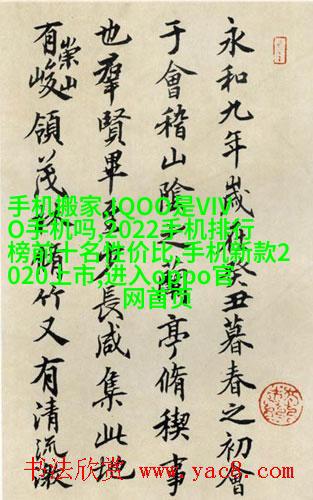 永和九年歲在癸丑暮春之初會
于會稽山陰之蘭亭脩稧事
也羣賢畢至少長咸集此地
有崇山峻領茂林脩竹又有清流激
手机搬家,IQOO是VIV
O手机吗,2022手机排行
榜前十名性价比,手机新款2
020上市,进入oppo官
网首页
书法欣赏 www.yac8.com